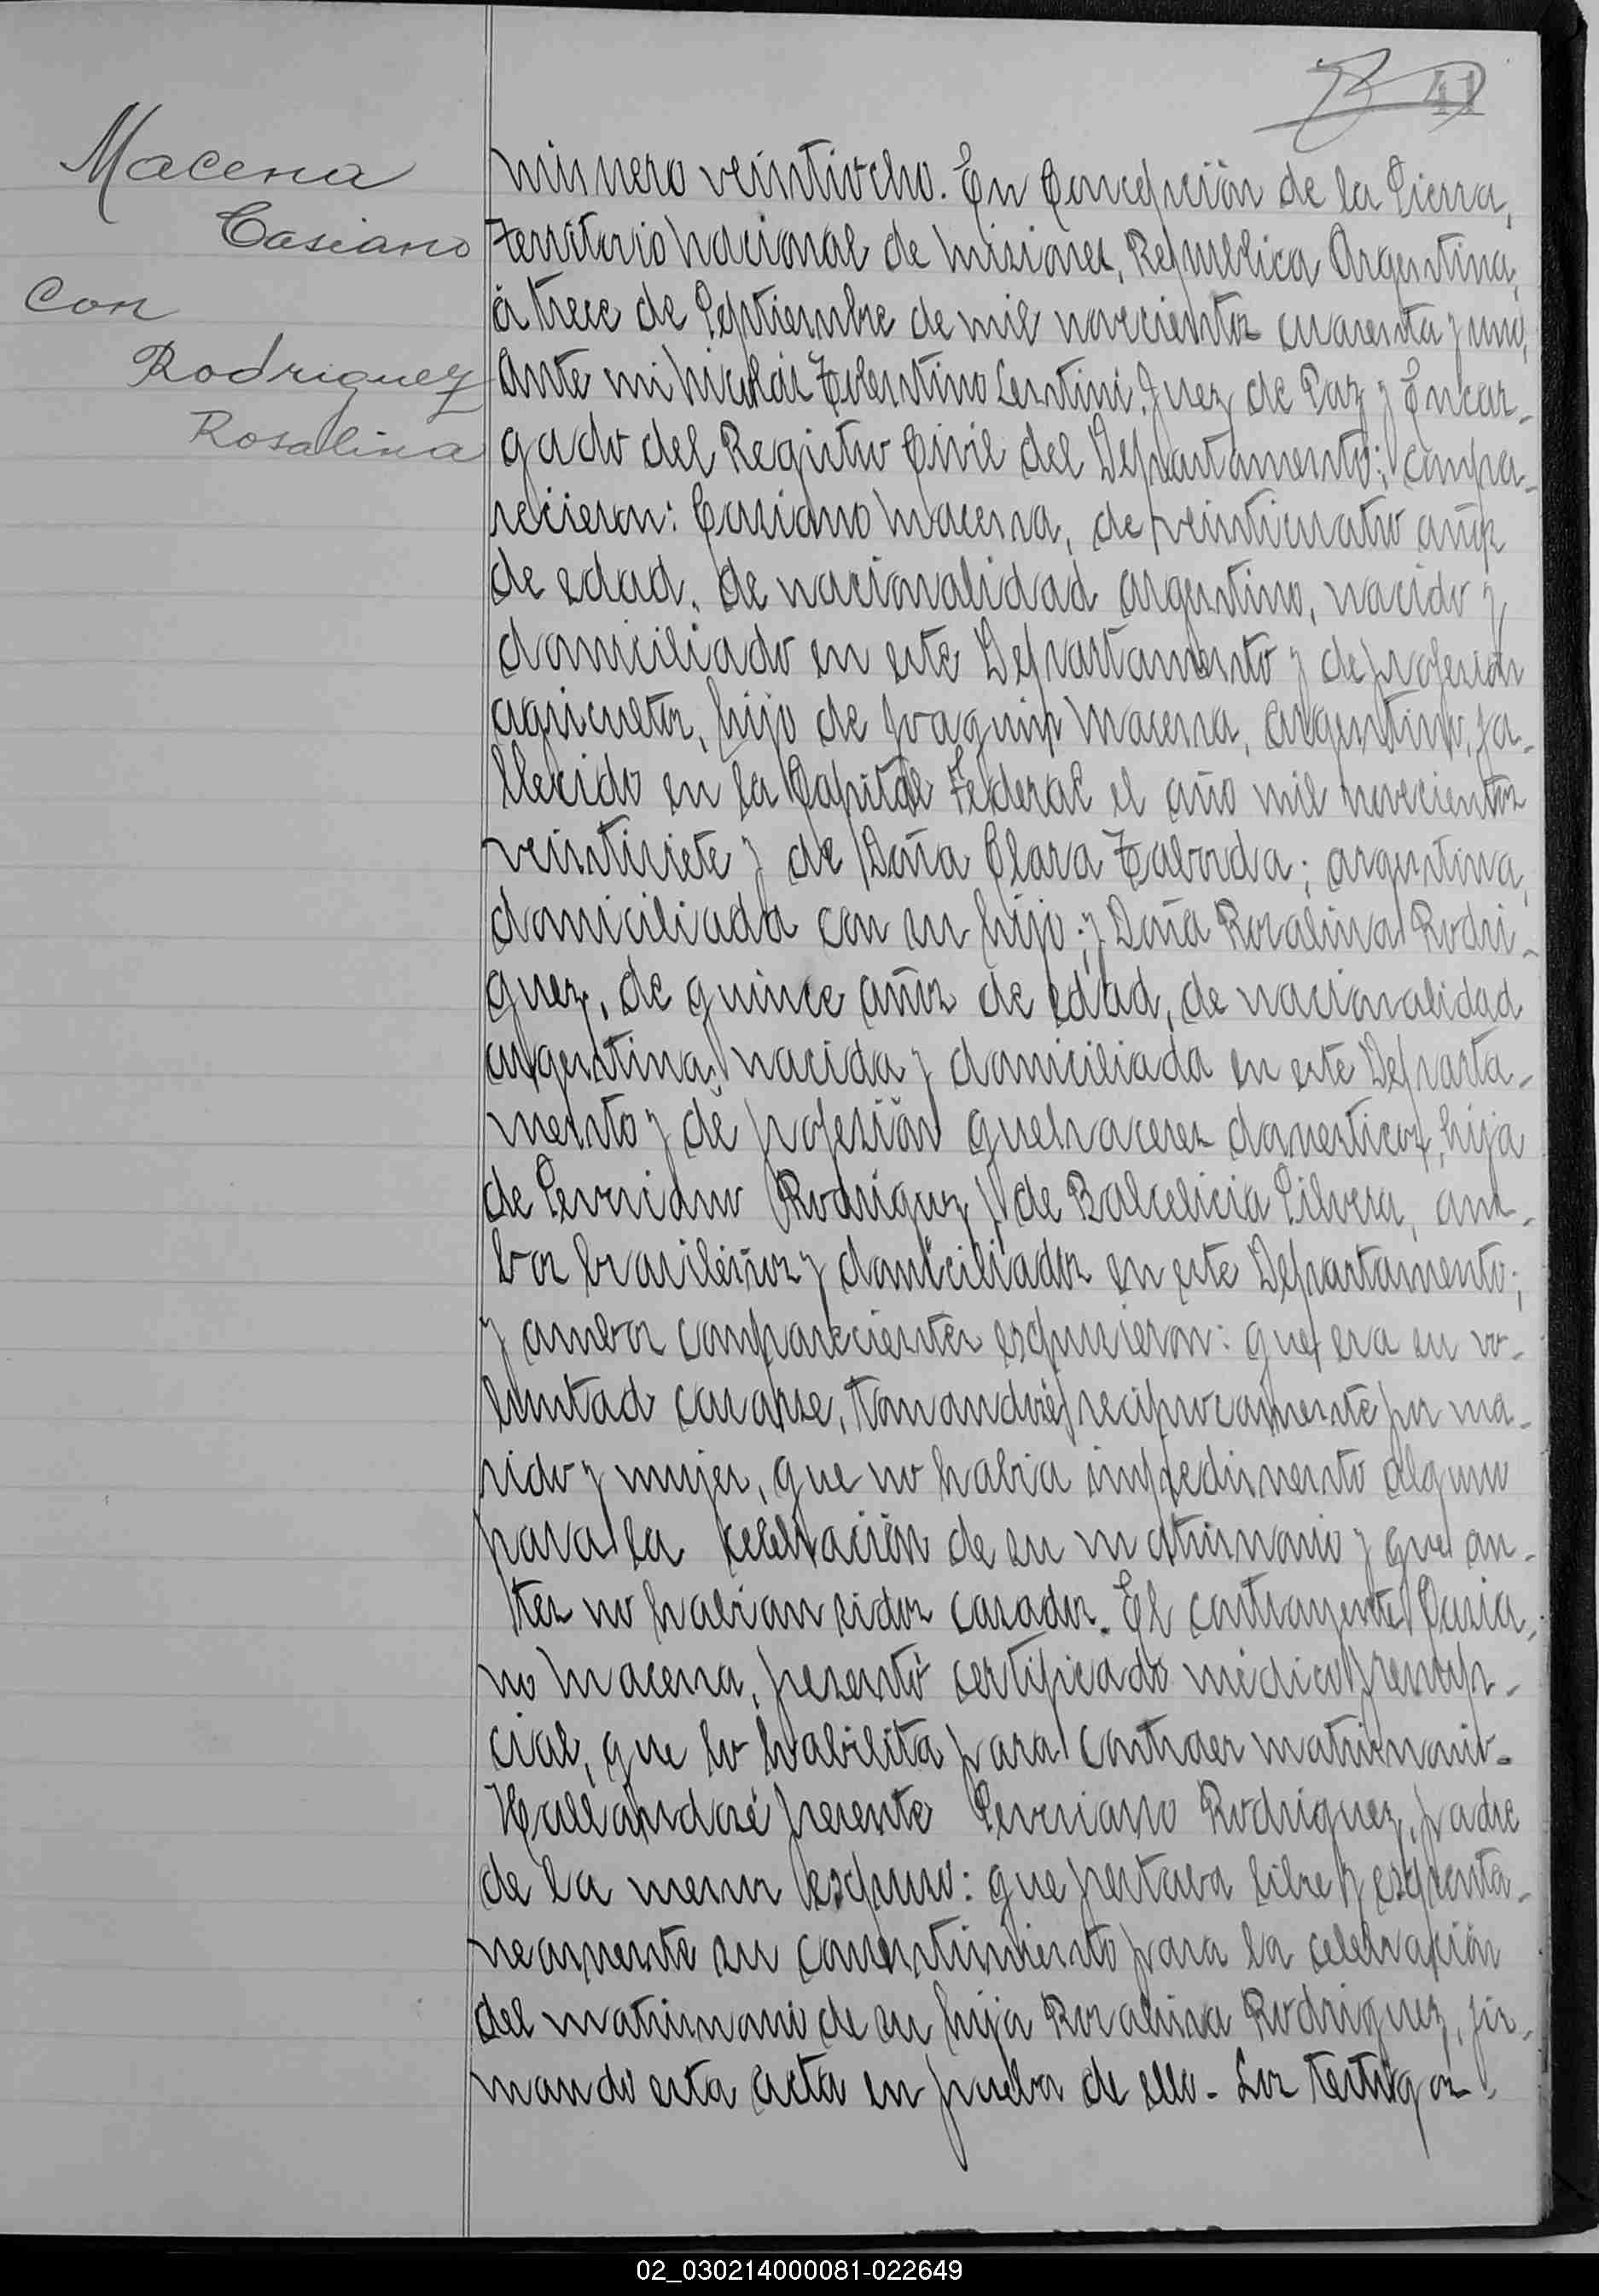 41
Macena
Casiano
Con
Rodriguez
Rosalina
Número veintiocho. En Concepción de la Sierra,
Territorio Nacional de Misiones, República Argentina,
á trece de Septiembre de mil novecientos cuarenta y uno,
ante mi Nicolás Tolentino Lentini, Juez de Paz y Encar-
gado del Registro Civil del Departamento; compa-
recieron: Casiano Macena, de veinticuatro años
de edad, de nacionalidad argentino, nacido y
domiciliado en este Departamento y de profesión
agricultor, hijo de Joaquin Macena, argentino, fa-
llecido en la Capital Federal el año mil novecientos
veintisiete y de Doña Clara Taborda; argentina,
domiciliada con su hijo; y Doña Rosalina Rodri-
guez, de quince años de edad, de nacionalidad
argentina, nacida y domiciliada en este Departa-
mento y de profesión quehaceres domesticos, hija
de Severiano Rodriguez y de Balcelicia Silvera, am-
bos brasileños y domiciliados en este Departamento;
y ambos comparecientes expusieron: que era su vo-
luntad casarse, tomandosé reciprocamente por ma-
rido y mujer, que no habia impedimento alguno
para la celebración de su matrimonio y que an-
tes no habian sidos casados. El contrayente Casia-
no Macena, presentó certificado médico prenup-
cial, que lo habilita para contraer matrimonio.
Hallandosé presente Severiano Rodriguez, padre
de la menor expuso: que prestaba libre y esponta-
neamente su consentimiento para la celebración
del matrimonio de su hija Rosalina Rodriguez, fir-
mando esta acta en prueba de ello. Los testigos
02_030214000081-022649